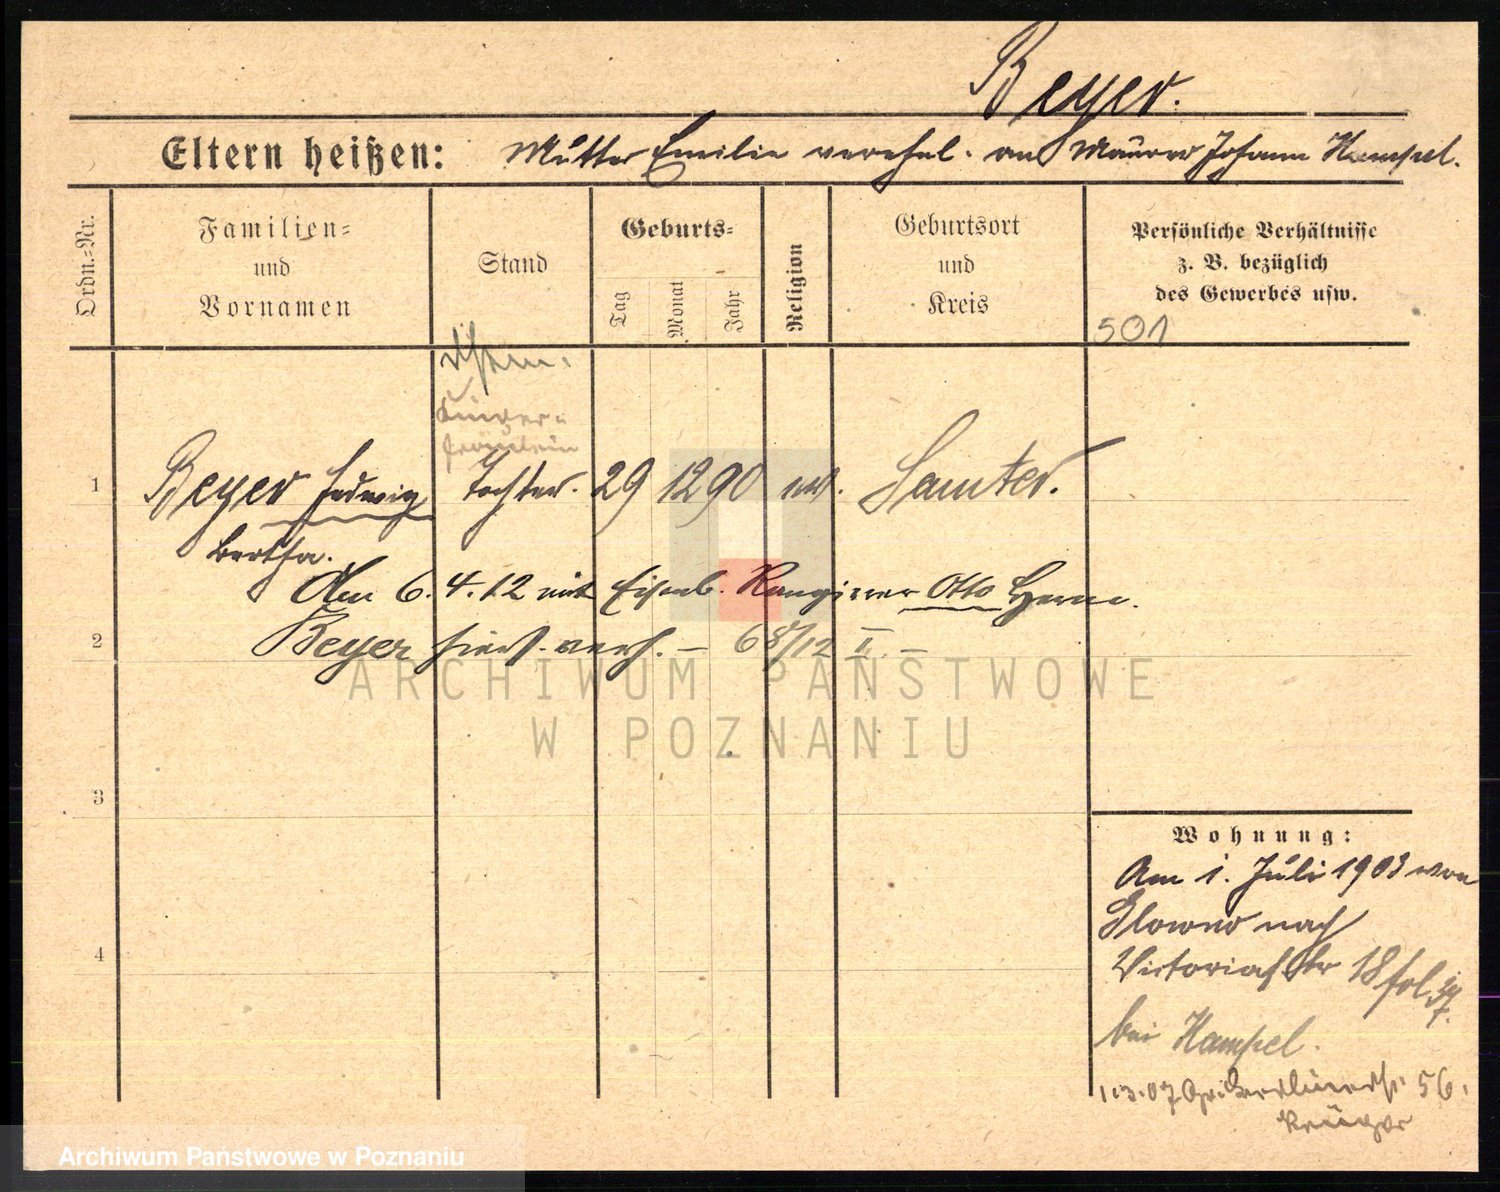 Beyer.
Eltern heißen: Mutter Emilie verehel. an Maurer Johann Hampel.
Ordn.-Nr.
Familien-
und
Vornamen
Stand
Geburts-
Tag
Monat
Jahr
Religion
Geburtsort
und
Kreis
Persönliche Verhältnisse
z. B. bezüglich
des Gewerbes usw.
501
Kinder-
fräulein
1 Beyer Hedwig Tochter. 29 12 90 ev. Samter.
Bertha.
Am 6. 4. 12 mit Eisenb. Rangierer Otto
2 Beyer hiers. verh. – 68/12 II. –
3
4
Wohnung:
Am 1. Juli 1903 von
Glowno nach
Victoriastr 18 fol.
bei Hampel.
1.3.07 56.
Krüger
ARCHIWUM PAŃSTWOWE
W POZNANIU
Archiwum Państwowe w Poznaniu